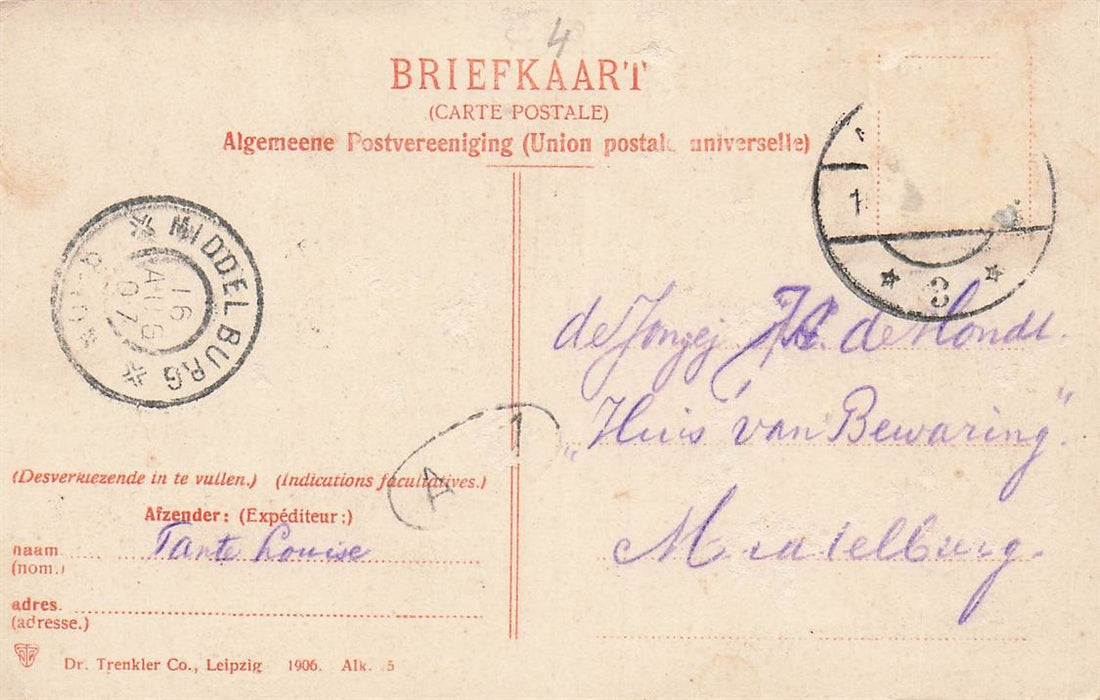 4
BRIEFKAART
(CARTE POSTALE)
Algemeene Postvereeniging (Union postale universelle)
MIDDELBURG
16
AUG
07
1
3
de Jongej de Hondt.
„Huis van Bewaring"
Middelburg.
A 1
(Desverkiezende in te vullen.) (Indications facultatives.)
Afzender: (Expéditeur:)
naam Tante Louise
(nom.)
adres.
(adresse.)
Dr. Trenkler Co., Leipzig 1906. Alk. 5